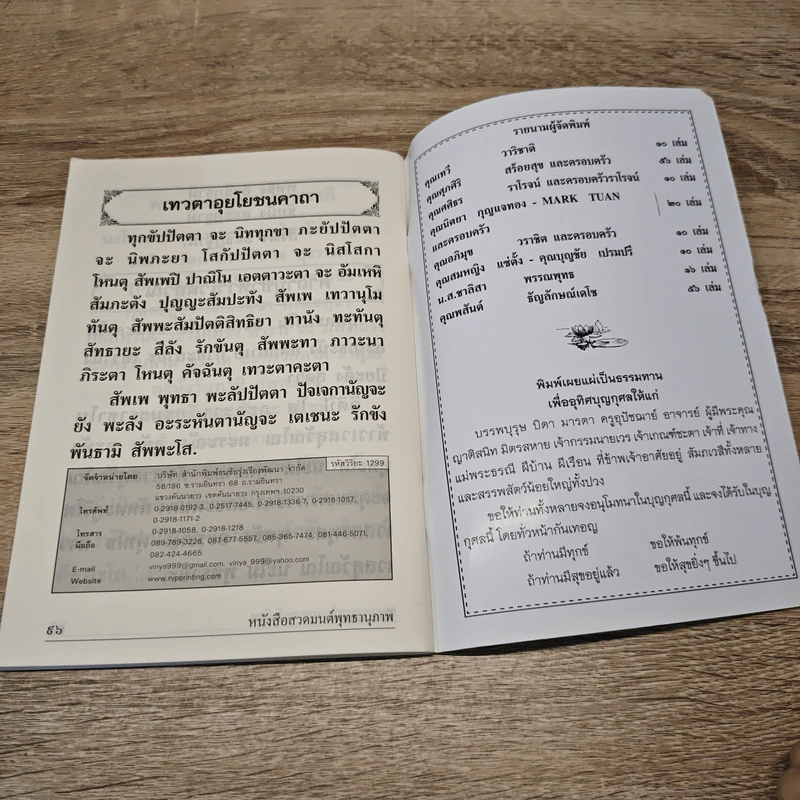 เทวตาอุยโยชนคาถา
ทุกขัปปัตตา จะ นิททุกขา ภะยัปปัตตา
จะ นิพภะยา โสกัปปัตตา จะ นิสโสกา
โหนตุ สัพเพปิ ปาณิโน เอตตาวะตา จะ อัมเหหิ
สัมภะตัง ปุญญะสัมปะทัง สัพเพ เทวานุโม
ทันตุ สัพพะสัมปัตติสิทธิยา ทานัง ทะทันตุ
สัทธายะ สีลัง รักขันตุ สัพพะทา ภาวะนา
ภิระตา โหนตุ คัจฉันตุ เทวะตาคะตา
สัพเพ พุทธา พะลัปปัตตา ปัจเจกานัญจะ
ยัง พะลัง อะระหันตานัญจะ เตเชนะ รักขัง
พันธามิ สัพพะโส.
รหัสวิริยะ 1299
จัดจำหน่ายโดย : บริษัท สำนักพิมพ์ธนชัยรุ่งเรืองพัฒนา จำกัด
58/186 ซ.รามอินทรา 68 ถ.รามอินทรา
แขวงคันนายาว เขตคันนายาว กรุงเทพฯ 10230
โทรศัพท์ : 0-2918-0192-3, 0-2517-7445, 0-2918-1336-7, 0-2918-1057,
0-2918-1171-2
โทรสาร : 0-2918-1058, 0-2918-1218
มือถือ : 089-789-3226, 087-677-5557, 085-365-7474, 081-446-5071,
082-424-4665
E-mail : viriya999@gmail.com, viriya_999@yahoo.com
Website : www.rvpprinting.com
๙๖ หนังสือสวดมนต์พุทธานุภาพ
รายนามผู้จัดพิมพ์
คุณเทวี วาริชาติ ๑๐ เล่ม
คุณศุภศิริ สร้อยสุข และครอบครัว ๕๖ เล่ม
คุณศสิธร ราโรจน์ และครอบครัวราโรจน์ ๑๐ เล่ม
คุณนิตยา กุญแจทอง - MARK TUAN
และครอบครัว ๒๐ เล่ม
คุณอภิมุข วราชิต และครอบครัว ๑๐ เล่ม
คุณสมพญิง แซ่ตั้ง - คุณบุญชัย เปรมปรี ๑๐ เล่ม
น.ส.ชาลิสา พรรณพุทธ ๑๖ เล่ม
คุณพสันต์ ธัญลักษณ์เดโช ๕๖ เล่ม
พิมพ์เผยแผ่เป็นธรรมทาน
เพื่ออุทิศบุญกุศลให้แก่
บรรพบุรุษ บิดา มารดา ครูอุปัชฌาย์ อาจารย์ ผู้มีพระคุณ
ญาติสนิท มิตรสหาย เจ้ากรรมนายเวร เจ้าเกณฑ์ชะตา เจ้าที่ เจ้าทาง
แม่พระธรณี ผีบ้าน ผีเรือน ที่ข้าพเจ้าอาศัยอยู่ สัมภเวสีทั้งหลาย
และสรรพสัตว์น้อยใหญ่ทั้งปวง
ขอให้ท่านทั้งหลายจงอนุโมทนาในบุญกุศลนี้ และจงได้รับในบุญ
กุศลนี้ โดยทั่วหน้ากันเทอญ
ถ้าท่านมีทุกข์ ขอให้พ้นทุกข์
ถ้าท่านมีสุขอยู่แล้ว ขอให้สุขยิ่งๆ ขึ้นไป